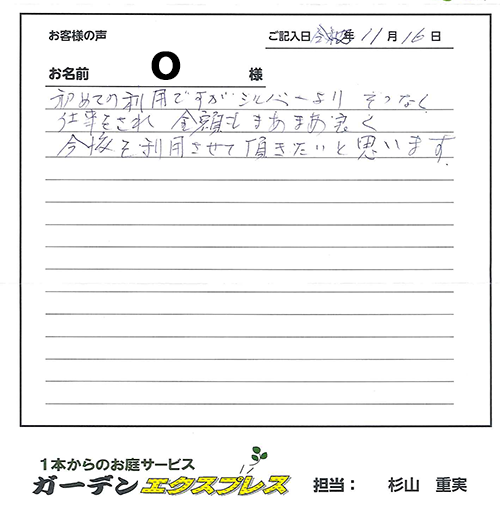 お客様の声
ご記入日 令和 年 11 月 16 日
お名前 O 様
初めての利用ですがシルバーより そつなく
仕事をされ 金額もまあまあ良く
今後も利用させて頂きたいと思います。
1本からのお庭サービス
ガーデンエクスプレス 担当: 杉山 重実